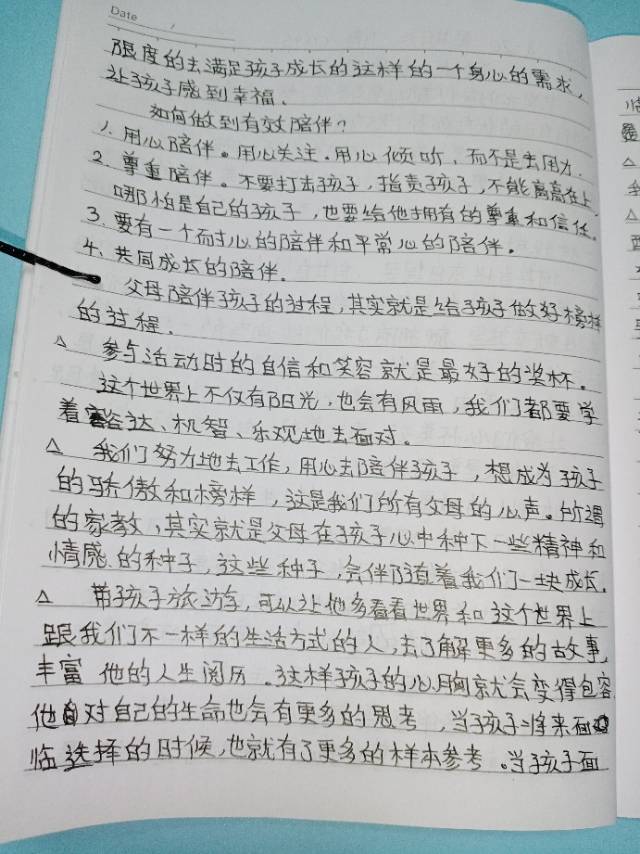 Date /
限度的去满足孩子成长的这样的一个身心的需求,
让孩子感到幸福、
如何做到有效陪伴?
1. 用心陪伴。用心关注.用心倾听、而不是去用力.
2. 尊重陪伴。不要打击孩子,指责孩子,不能高高在上.
哪怕是自己的孩子,也要给他拥有的尊重和信任.
3. 要有一个耐心的陪伴和平常心的陪伴.
4. 共同成长的陪伴.
父母陪伴孩子的过程,其实就是给孩子做好榜样
的过程.
△ 参与活动时的自信和笑容就是最好的奖杯.
这个世界上不仅有阳光,也会有风雨,我们都要学
着豁达、机智、乐观地去面对.
△ 我们努力地去工作,用心去陪伴孩子,想成为孩子
的骄傲和榜样,这是我们所有父母的心声。所谓
的家教,其实就是父母在孩子心中种下一些精神和
情感的种子,这些种子,会伴随着我们一块成长.
△ 带孩子旅游,可以让他多看看世界和这个世界上
跟我们不一样的生活方式的人,去了解更多的故事,
丰富他的人生阅历.这样孩子的心胸就会变得包容
他对自己的生命也会有更多的思考,当孩子将来面
临选择的时候,也就有了更多的样本参考。当孩子面